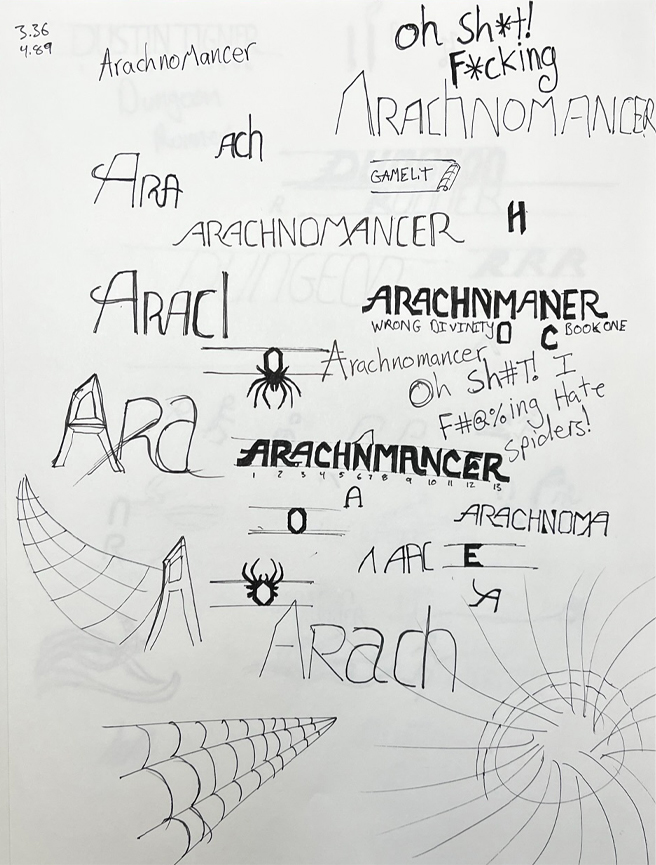 3.36
4.89
ArachnoMancer
oh sh*t!
F*cking
ARAchNOMANCER
Ach
ARA
GAMELiT
ARACHNOMANCER
H
ARACl
ARACHNMANER
WRONG DIVINITY O C BOOK ONE
Arachnomancer
Oh Sh#T! I
F#@%ing Hate
Spiders!
ARa
ARACHNMANCER
1 2 3 4 5 6 7 8 9 10 11 12 13
A
O
ARACHNOMA
A ARC E
A
A
ARach